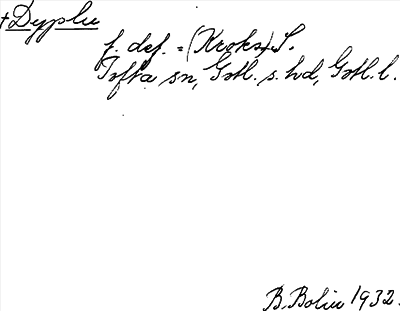 + Dyplu
f. def. = (Kroks) S.
Tofta sn, Gotl. s. hd, Gotl. l.
B. Bolin 1932.